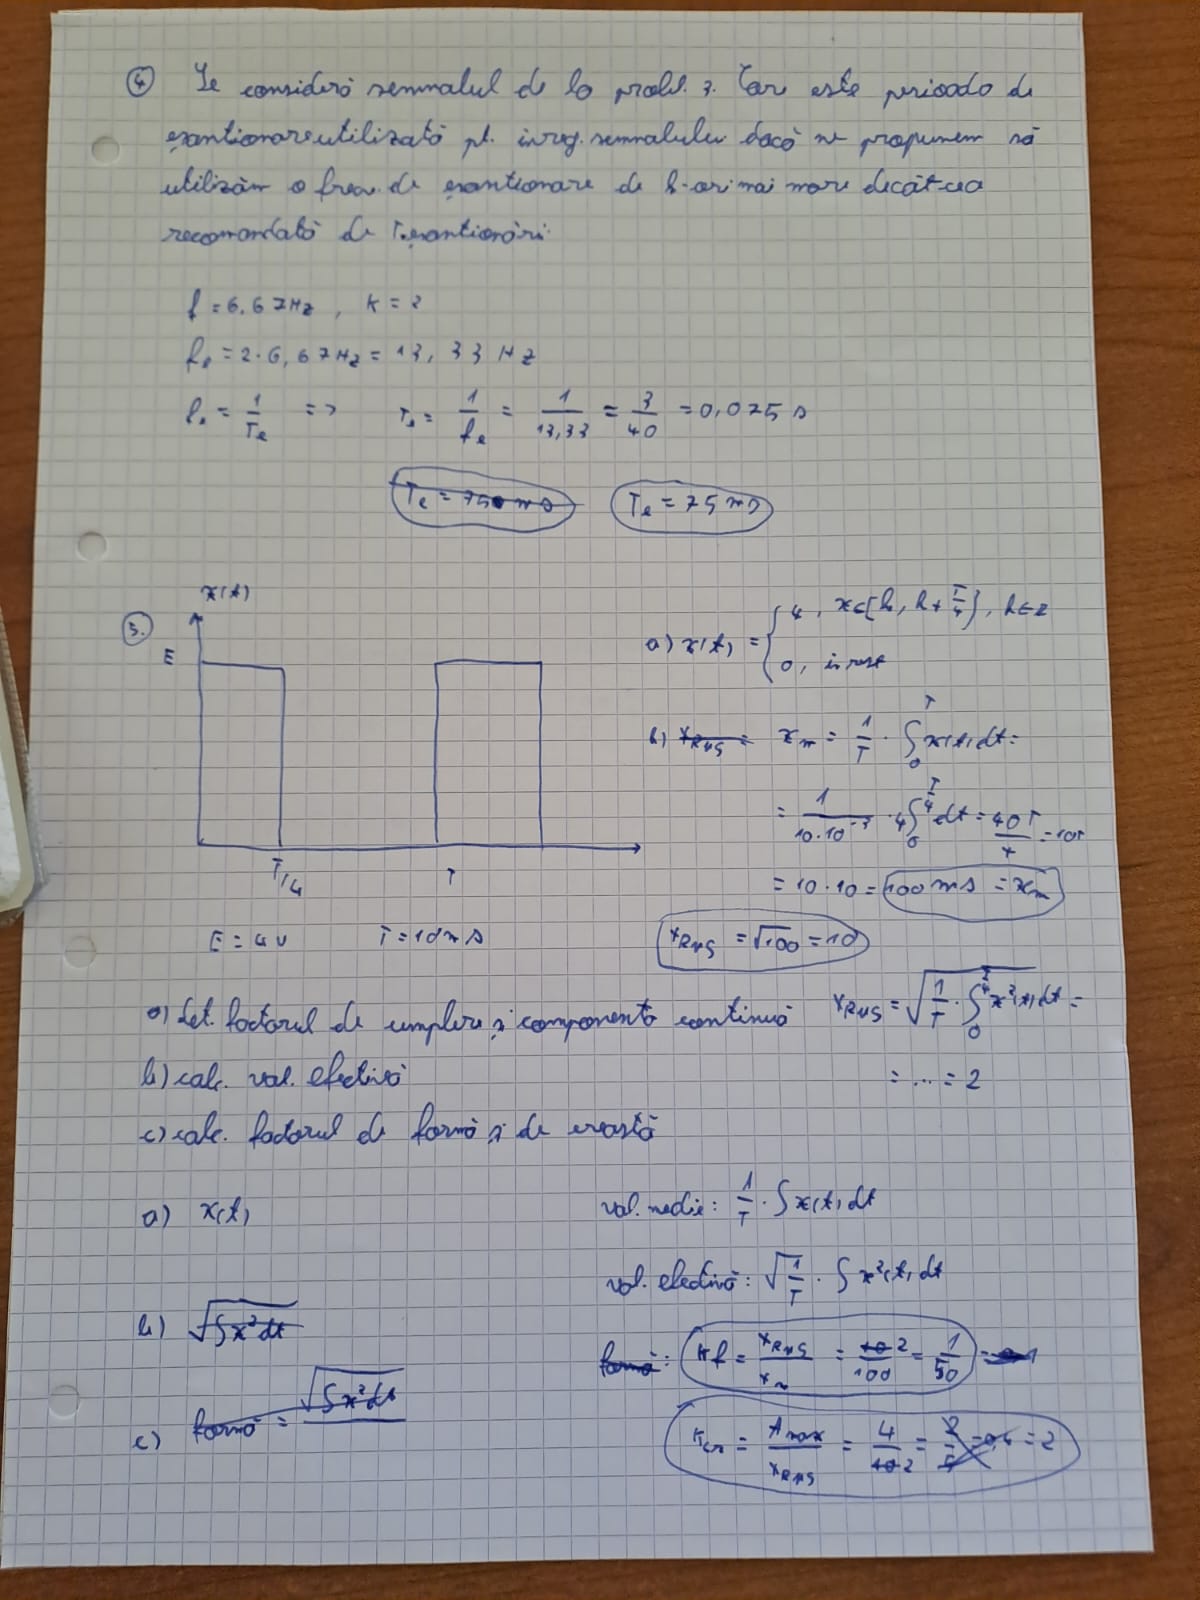 4 Se consideră semnalul de la probl. 3. Care este perioada de
eșantionare utilizată pt. inreg. semnalului dacă ne propunem să
utilizăm o frecv. de eșantionare de k-ori mai mare decât cea
recomandată de T.eșantionări.
f = 6,67Hz , K = 2
fe = 2·6,67Hz = 13,33 Hz
fe = 1/Te => Te = 1/fe = 1/13,33 = 3/40 = 0,075 s
Te = 750 ms Te = 75 ms
x(t)
5.
E
T/4 T
E = 4V T = 10ms
a) x(t) = { 4, x∈[k, k + T/4}, k∈Z
0, in rest
b) xRMS = xm = 1/T · ∫0T x(t)dt =
= 1/10·10⁻³ · 4∫0T/4 dt = 40T/4 = 10T
= 10·10 = 100 ms = xm
xRMS = √100 = 10
a) det. factorul de umplere și componenta continuă
xRMS = √1/T · ∫0 x²(t)dt =
b) calc. val. efectivă
= ... = 2
c) calc. factorul de formă și de creastă
a) x(t)
val. medie: 1/T · ∫x(t)dt
val. efectivă: √1/T · ∫x²(t)dt
b) √∫x²dt
formă: Kf = xRMS/xm = 10 2/100 = 1/50
c) formă = √∫x²dt
Kcr = Amax/xRMS = 4/10 2 = 2/5 = 0,4 = 2